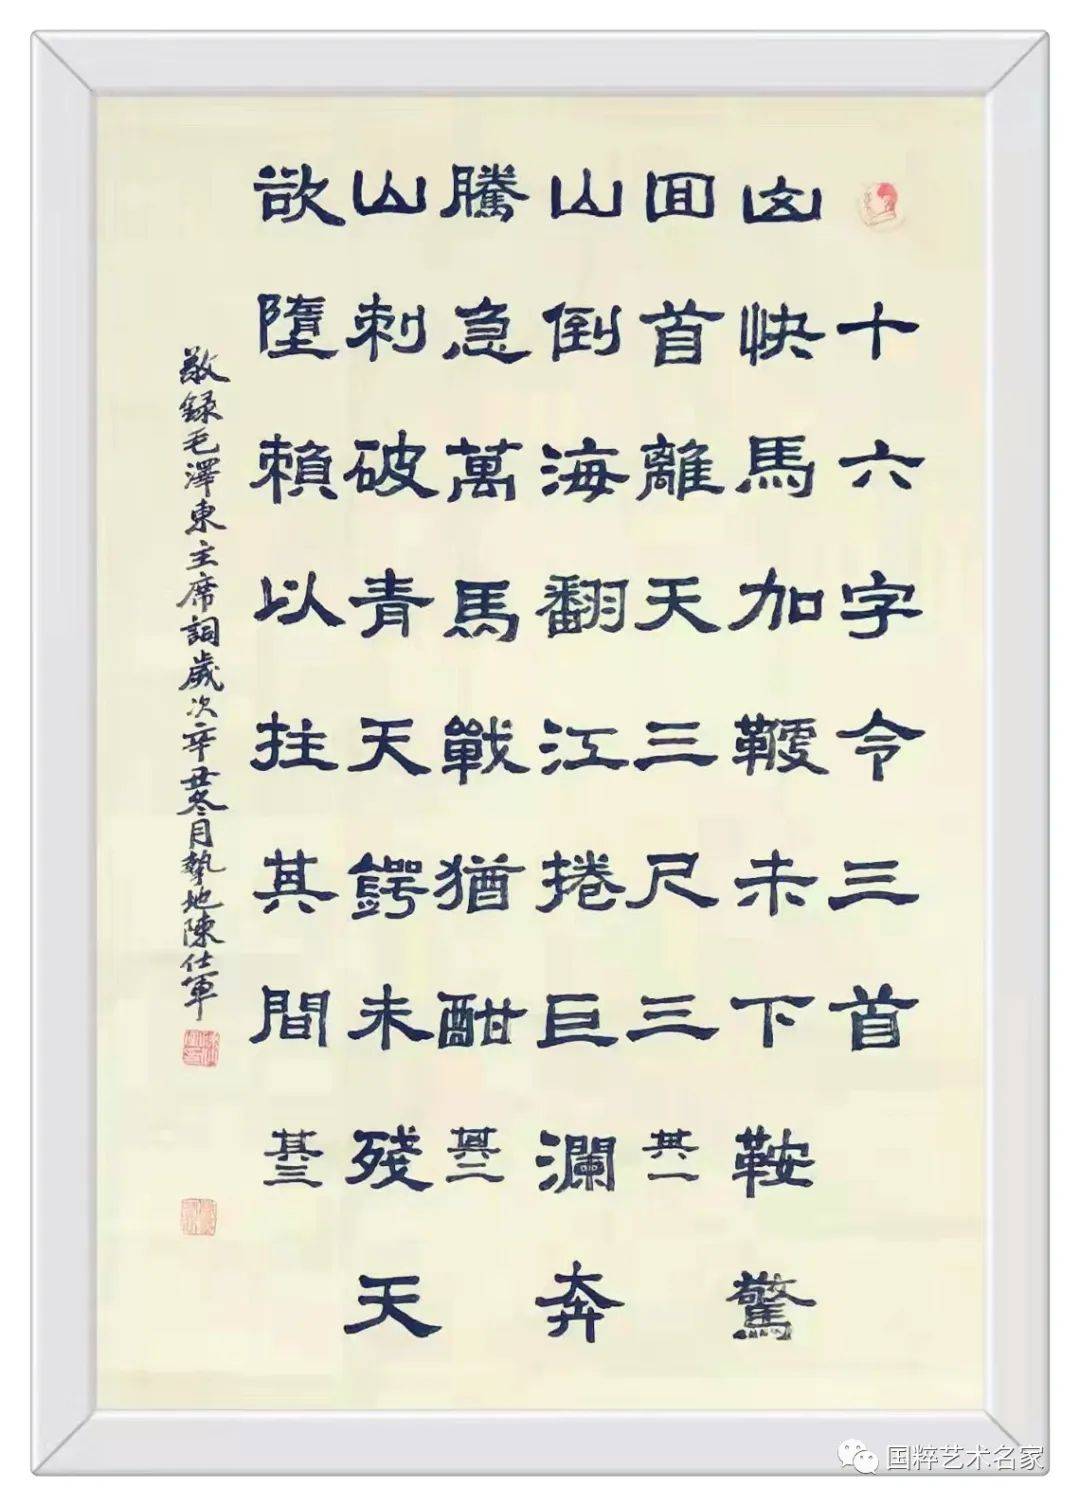 十六字令三首
山快馬加鞭未下鞍驚
囬首離天三尺三 其一
山倒海翻江捲巨瀾奔
騰急萬馬戰猶酣 其二
山刺破青天鍔未殘天
欲墮賴以拄其間 其三
敬録毛澤東主席詞歲次辛丑冬月地陳仕軍
国粹艺术名家